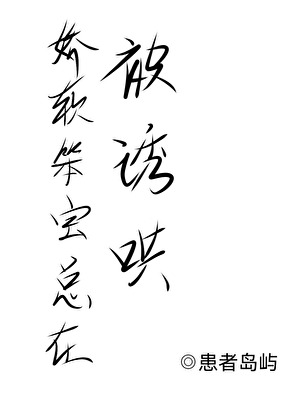 娇软笨宝总在
被诱哄
◎患者岛屿